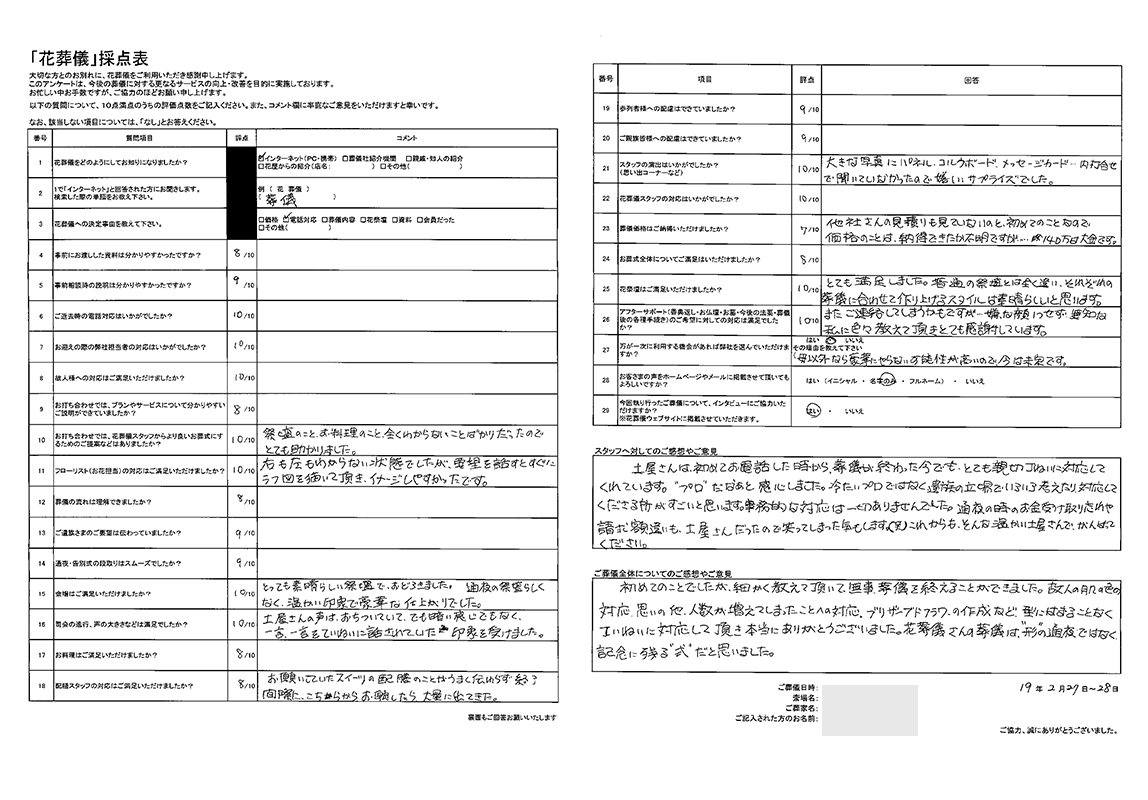 「花葬儀」採点表
大切な方とのお別れに、花葬儀をご利用いただき感謝申し上げます。
このアンケートは、今後の葬儀に対する更なるサービスの向上・改善を目的に実施しております。
お忙しい中お手数ですが、ご協力のほどお願い申し上げます。
以下の質問について、10点満点のうちの評価点数をご記入ください。また、コメント欄に率直なご意見をいただけますと幸いです。
なお、該当しない項目については、「なし」とお答えください。
番号 質問項目 採点 コメント
1 花葬儀をどのようにしてお知りになりましたか? ☑インターネット(PC・携帯) □葬儀社紹介機関 □親戚・知人の紹介
□花屋からの紹介(店名: ) □その他( )
2 1で「インターネット」と回答された方にお聞きします。
検索した際の単語をお教え下さい。
例 ( 花 葬儀 )
( 葬儀 )
3 花葬儀への決定事由を教えて下さい。 □価格 ☑電話対応 □葬儀内容 □花祭壇 □資料 □会員だった
□その他( )
4 事前にお渡しした資料は分かりやすかったですか? 8/10
5 事前相談時の説明は分かりやすかったですか? 9/10
6 ご逝去時の電話対応はいかがでしたか? 10/10
7 お迎えの際の弊社担当者の対応はいかがでしたか? 10/10
8 故人様への対応はご満足いただけましたか? 10/10
9 お打ち合わせでは、プランやサービスについて分かりやすい
ご説明ができていましたか? 8/10
10 お打ち合わせでは、花葬儀スタッフからより良いお葬式に
するためのご提案などはありましたか? 10/10
祭壇のこと、お料理のこと、全くわからないことばかりだったので
とても助かりました。
11 フローリスト(お花担当)の対応はご満足いただけましたか? 10/10
右も左もわからない状態でしたが、要望を話すとすぐに
ラフ図を描いて頂き、イメージしやすかったです。
12 葬儀の流れは理解できましたか? 8/10
13 ご遺族さまのご要望は伝わっていましたか? 9/10
14 通夜・告別式の段取りはスムーズでしたか? 9/10
15 会場はご満足いただけましたか? 10/10
とっても素晴らしい祭壇で、おどろきました。 通夜の祭壇らしく
なく、温かい印象で豪華な仕上がりでした。
16 司会の進行、声の大きさなどは満足でしたか? 10/10
土屋さんの声は、おちついていて、でも暗い感じでもなく、
一言、一言をていねいに話されていた印象を受けました。
17 お料理はご満足いただけましたか? 8/10
18 配膳スタッフの対応はご満足いただけましたか? 8/10
お願いしていたスイーツの配膳のことがうまく伝わらず終了
間際に、こちらからお願いしたら、大量に出てきた。
裏面もご回答お願いいたします
番号 項目 評点 回答
19 参列者様への配慮はできていましたか? 9/10
20 ご親族皆様への配慮はできていましたか? 9/10
21 スタッフの演出はいかがでしたか?
(思い出コーナーなど) 10/10
大きな写真にパネル、コルクボード、メッセージカード… 内打合せ
で聞いていなかったので嬉しいサプライズでした。
22 花葬儀スタッフの対応はいかがでしたか? 10/10
23 葬儀価格はご納得いただけましたか? 7/10
他社さんの見積りも見ていないのと、初めてのことなので
価格のことは、納得できたか不明ですが…. 140万は大金です。
24 お葬式全体についてご満足はいただけましたか? 8/10
25 花祭壇はご満足いただけましたか? 10/10
とても満足しました。普通の祭壇とは全く違い、それぞれの
葬儀に合わせて作り上げるスタイルは素晴らしいと思います。
26 アフターサポート(香典返し・お仏壇・お墓・今後の法要・葬儀
後の各種手続き)のご希望に対しての対応は満足でした
か? 10/10
またご連絡してしまうかもですが…嫌な顔せず、無知な
私に色々教えて頂きとても感謝しています。
27 万が一次に利用する機会があれば弊社を選んでいただけま
すか?
はい ・ いいえ
その理由を教えて下さい
母以外なら豪華にやらない可能性が高いので、今は未定です。
28 お客さまの声をホームページやメールに掲載させて頂いても
よろしいですか? はい (イニシャル ・ 名字のみ ・ フルネーム) ・ いいえ
29 今回執り行ったご葬儀について、インタビューにご協力いた
だけますか?
※花葬儀ウェブサイトに掲載させていただきます。
はい ・ いいえ
スタッフへ対してのご感想やご意見
土屋さんは、初めてお電話した時から、葬儀が終わった今でも、とても親切ていねいに対応して
くれています。“プロ”だなあと感心しました。冷たいプロではなく、遺族の立場でいろいろ考えたり、対応して
くださる所がすごいと思います。事務的な対応は一切ありませんでした。通夜の時のお金受け取り忘れや
請求額違いも、土屋さんだったので笑ってしまった気もします(笑)これからも、そんな温かい土屋さんで、がんばって
ください。
ご葬儀全体についてのご感想やご意見
初めてのことでしたが、細かく教えて頂いて無事、葬儀を終えることができました。故人の肌の色の
対応、思いの他、人数が増えてしまったことへの対応、ブリザーブドフラワーの作成など、型にはまることなく
ていねいに対応して頂き本当にありがとうございました。花葬儀さんの葬儀は、“形”の通夜ではなく、
記念に残る“式”だと思いました。
ご葬儀日時: 19年 2月27日~28日
斎場名:
ご葬家名:
ご記入された方のお名前:
ご協力、誠にありがとうございました。